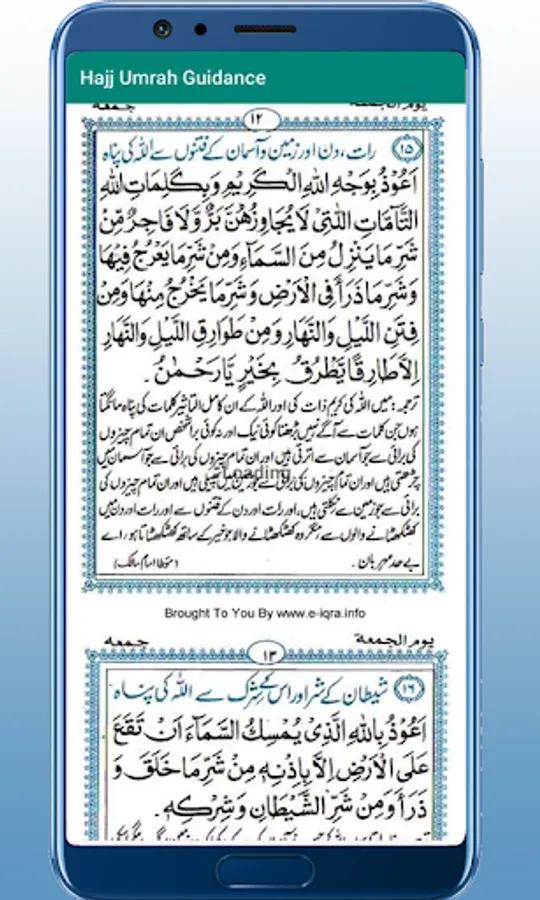 Hajj Umrah Guidance
جمعه
يوم الجمعة
١٢
١٥
رات، دن اور زمین و آسمان کے فتنوں سے اللہ کی پناہ
اَعُوْذُ بِوَجْهِ اللهِ الْكَرِيْمِ وَبِكَلِمَاتِ اللهِ
التَّآمَّاتِ اللَّاتِىْ لَا يُجَاوِزُهُنَّ بَرٌّ وَّلَا فَاجِرٌ مِّنْ
شَرِّ مَا يَنْزِلُ مِنَ السَّمَآءِ وَمِنْ شَرِّ مَا يَعْرُجُ فِيْهَا
وَشَرِّ مَا ذَرَأَ فِى الْاَرْضِ وَشَرِّ مَا يَخْرُجُ مِنْهَا وَمِنْ
فِتَنِ اللَّيْلِ وَالنَّهَارِ وَمِنْ طَوَارِقِ اللَّيْلِ وَالنَّهَارِ
اِلَّا طَارِقًا يَّطْرُقُ بِخَيْرٍ يَّا رَحْمٰنُ.
ترجمہ: میں اللہ کی کریم ذات کی اور اللہ کے ان کامل التاثیر کلمات کی پناہ مانگتا
ہوں جن کلمات سے آگے نہیں بڑھتا کوئی نیک اور نہ کوئی برا شخص ان تمام چیزوں
کی برائی سے جو آسمان سے اترتی ہیں اور ان تمام چیزوں کی برائی سے جو آسمان میں
چڑھتی ہیں اور ان تمام چیزوں کی برائی سے جو زمین میں پھیلی ہیں اور ان تمام چیزوں کی
Loading
برائی سے جو زمین سے نکلتی ہیں، اور رات اور دن کے فتنوں سے اور رات اور دن میں
کھٹکھٹانے والوں سے مگر وہ کھٹکھٹانے والا جو خیر کے ساتھ کھٹکھٹاتا ہو، اے
بے حد مہربان۔ (مؤطا امام مالک)
Brought To You By www.e-iqra.info
جمعه
يوم الجمعة
١٣
١٦
شیطان کے شر اور اس کے شرک سے اللہ کی پناہ
اَعُوْذُ بِاللهِ الَّذِىْ يُمْسِكُ السَّمَآءَ اَنْ تَقَعَ
عَلَى الْاَرْضِ اِلَّا بِاِذْنِهٖ مِنْ شَرِّ مَا خَلَقَ وَ
ذَرَأَ وَمِنْ شَرِّ الشَّيْطَانِ وَشِرْكِهٖ.